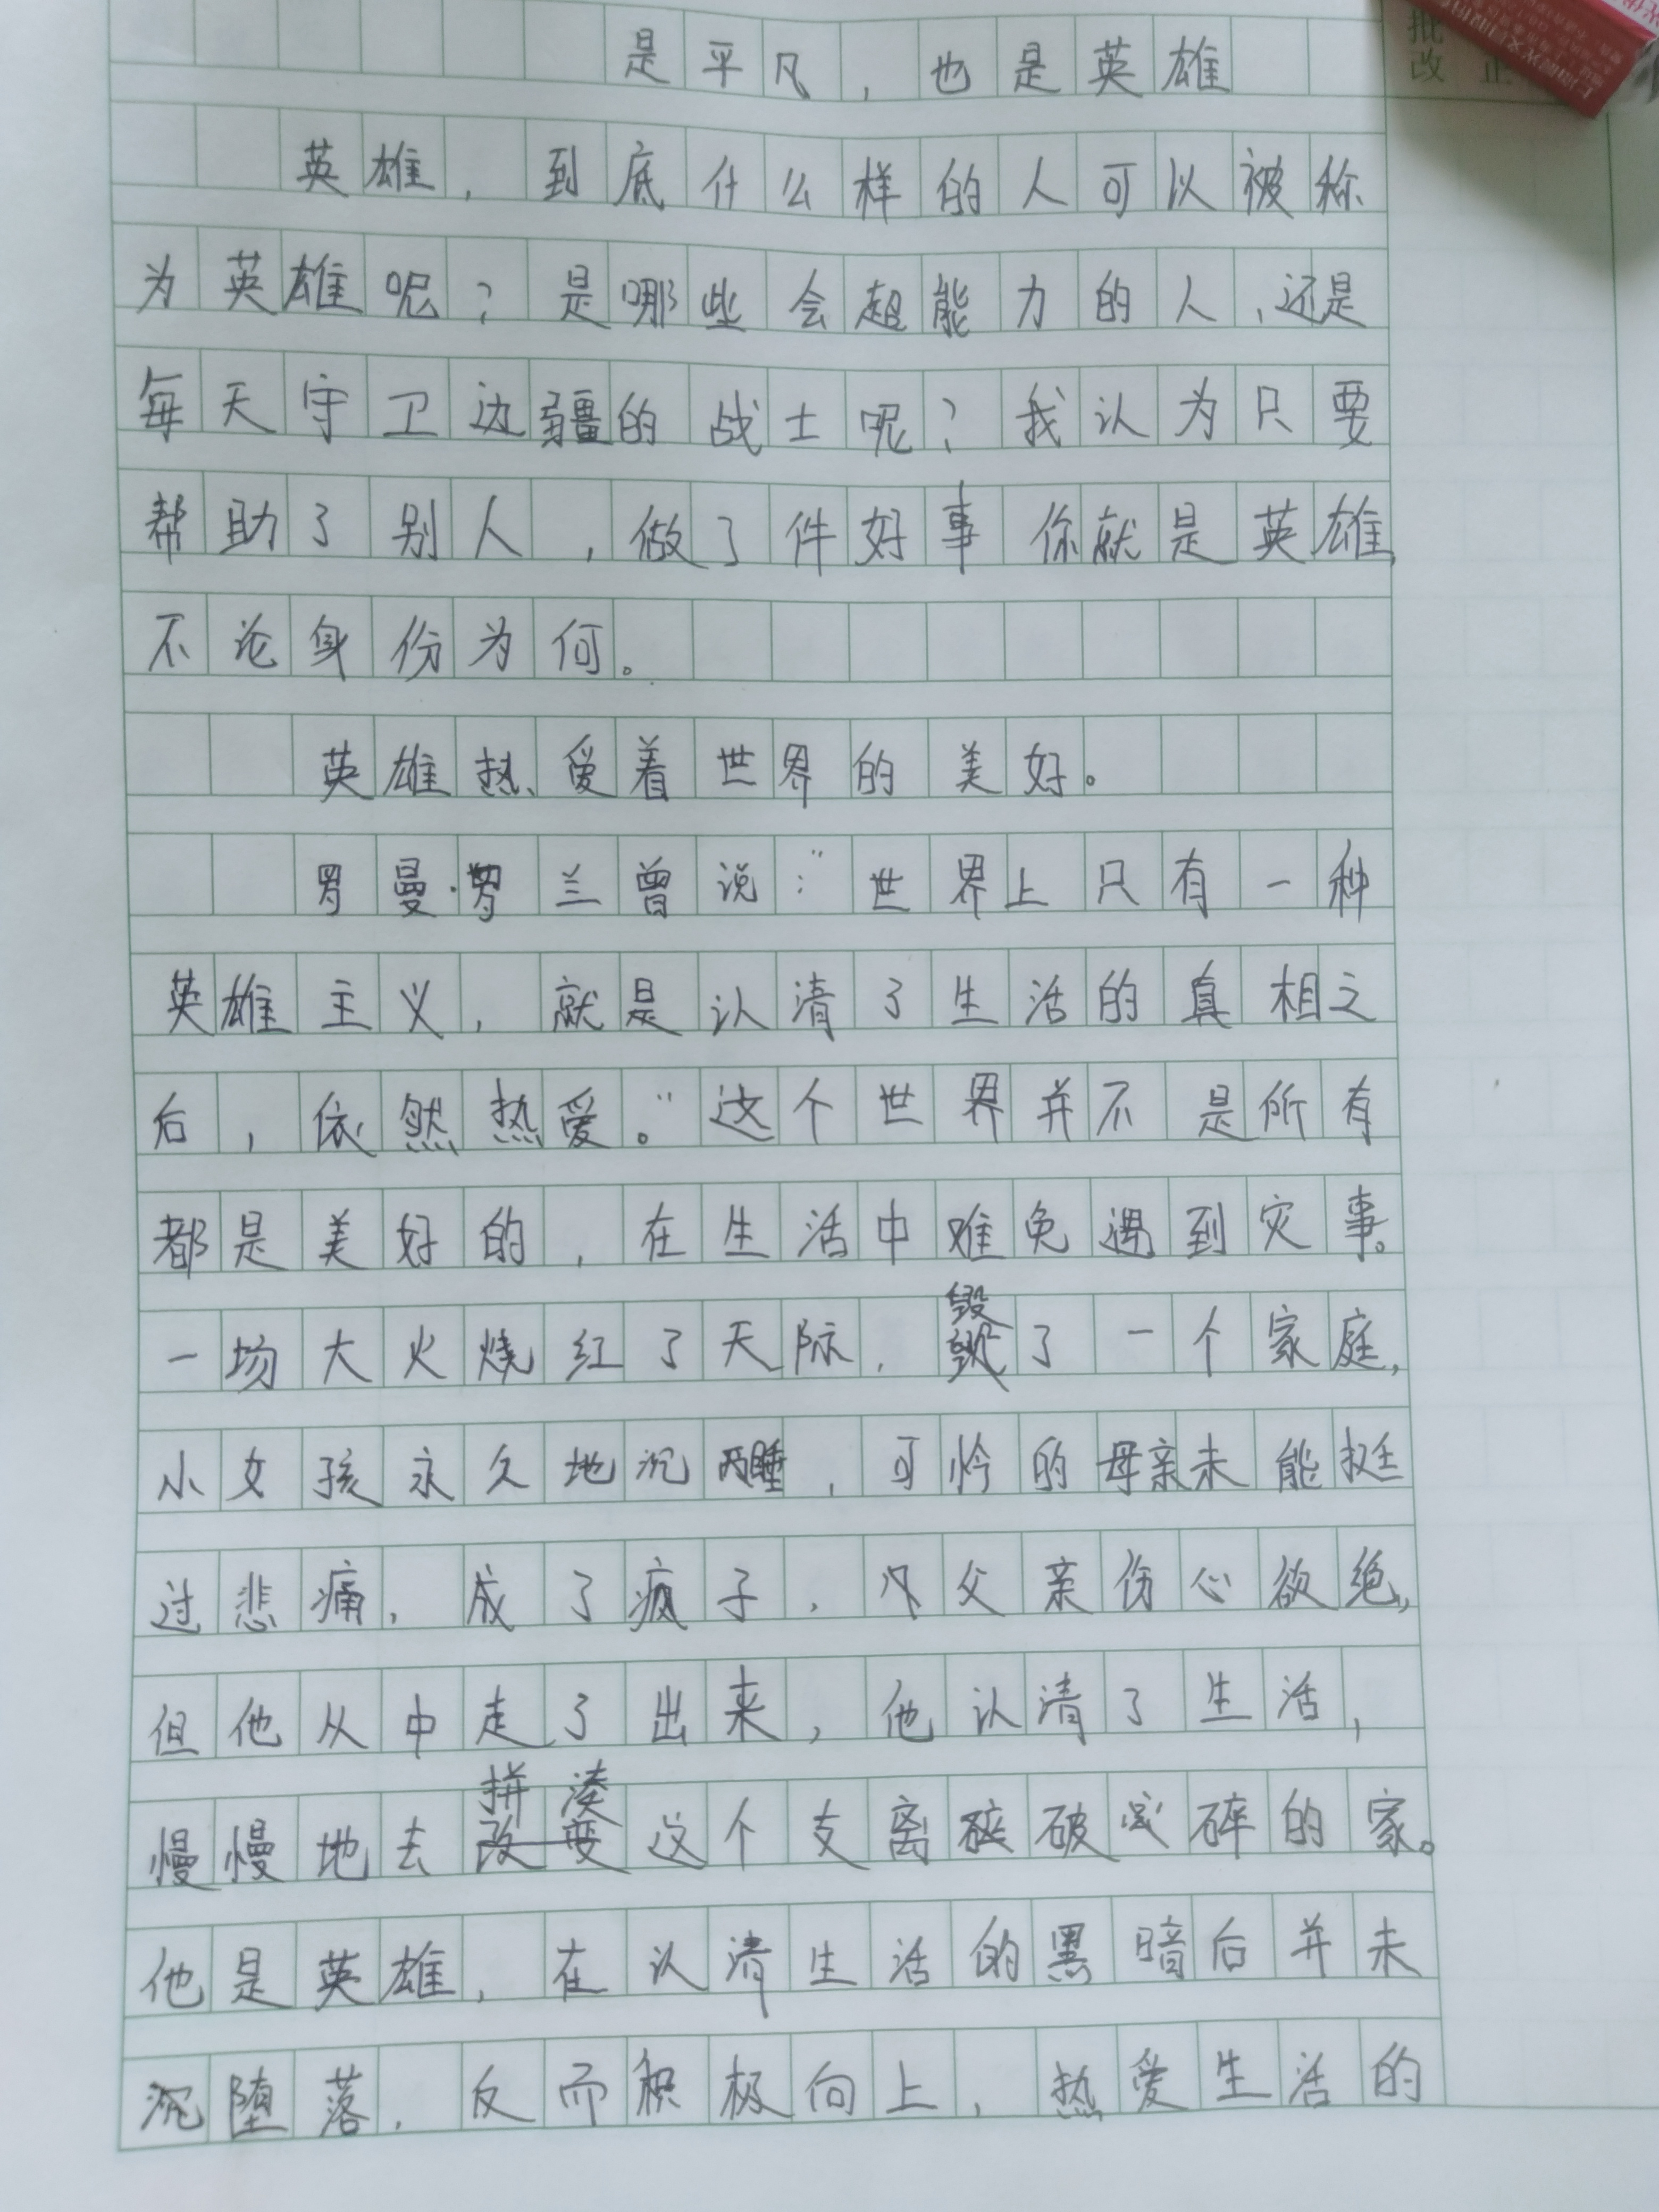 是平凡，也是英雄
英雄，到底什么样的人可以被称
为英雄呢？是哪些会超能力的人，还是
每天守卫边疆的战士呢？我认为只要
帮助了别人，做了件好事你就是英雄，
不论身份为何。
英雄热爱着世界的美好。
罗曼·罗兰曾说：“世界上只有一种
英雄主义，就是认清了生活的真相之
后，依然热爱。”这个世界并不是所有
都是美好的，在生活中难免遇到灾事。
一场大火烧红了天际，毁了一个家庭，
小女孩永久地沉睡，可怜的母亲未能挺
过悲痛，成了疯子，父亲伤心欲绝，
但他从中走了出来，他认清了生活，
慢慢地去拼凑这个支离破碎的家。
他是英雄，在认清生活的黑暗后并未
沉堕落，反而积极向上，热爱生活的
批改
正